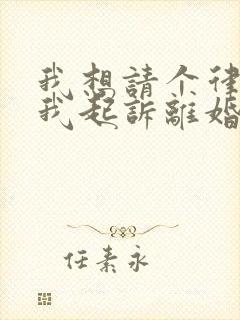 我想請个律
我起訴離婚
任素永